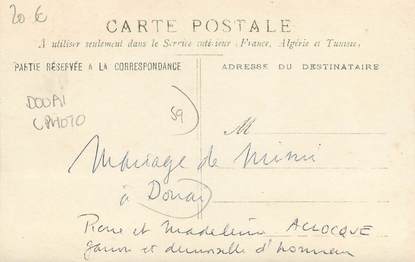 20 €
CARTE POSTALE
A utiliser seulement dans le Service intérieur (France, Algérie et Tunisie.
PARTIE RÉSERVÉE A LA CORRESPONDANCE
ADRESSE DU DESTINATAIRE
DOUAI
CPHOTO
59
M
Mariage de Mimi
à Douai
Pierre et Madeleine ALLOCQUE
garçon et demoiselle d'honneur